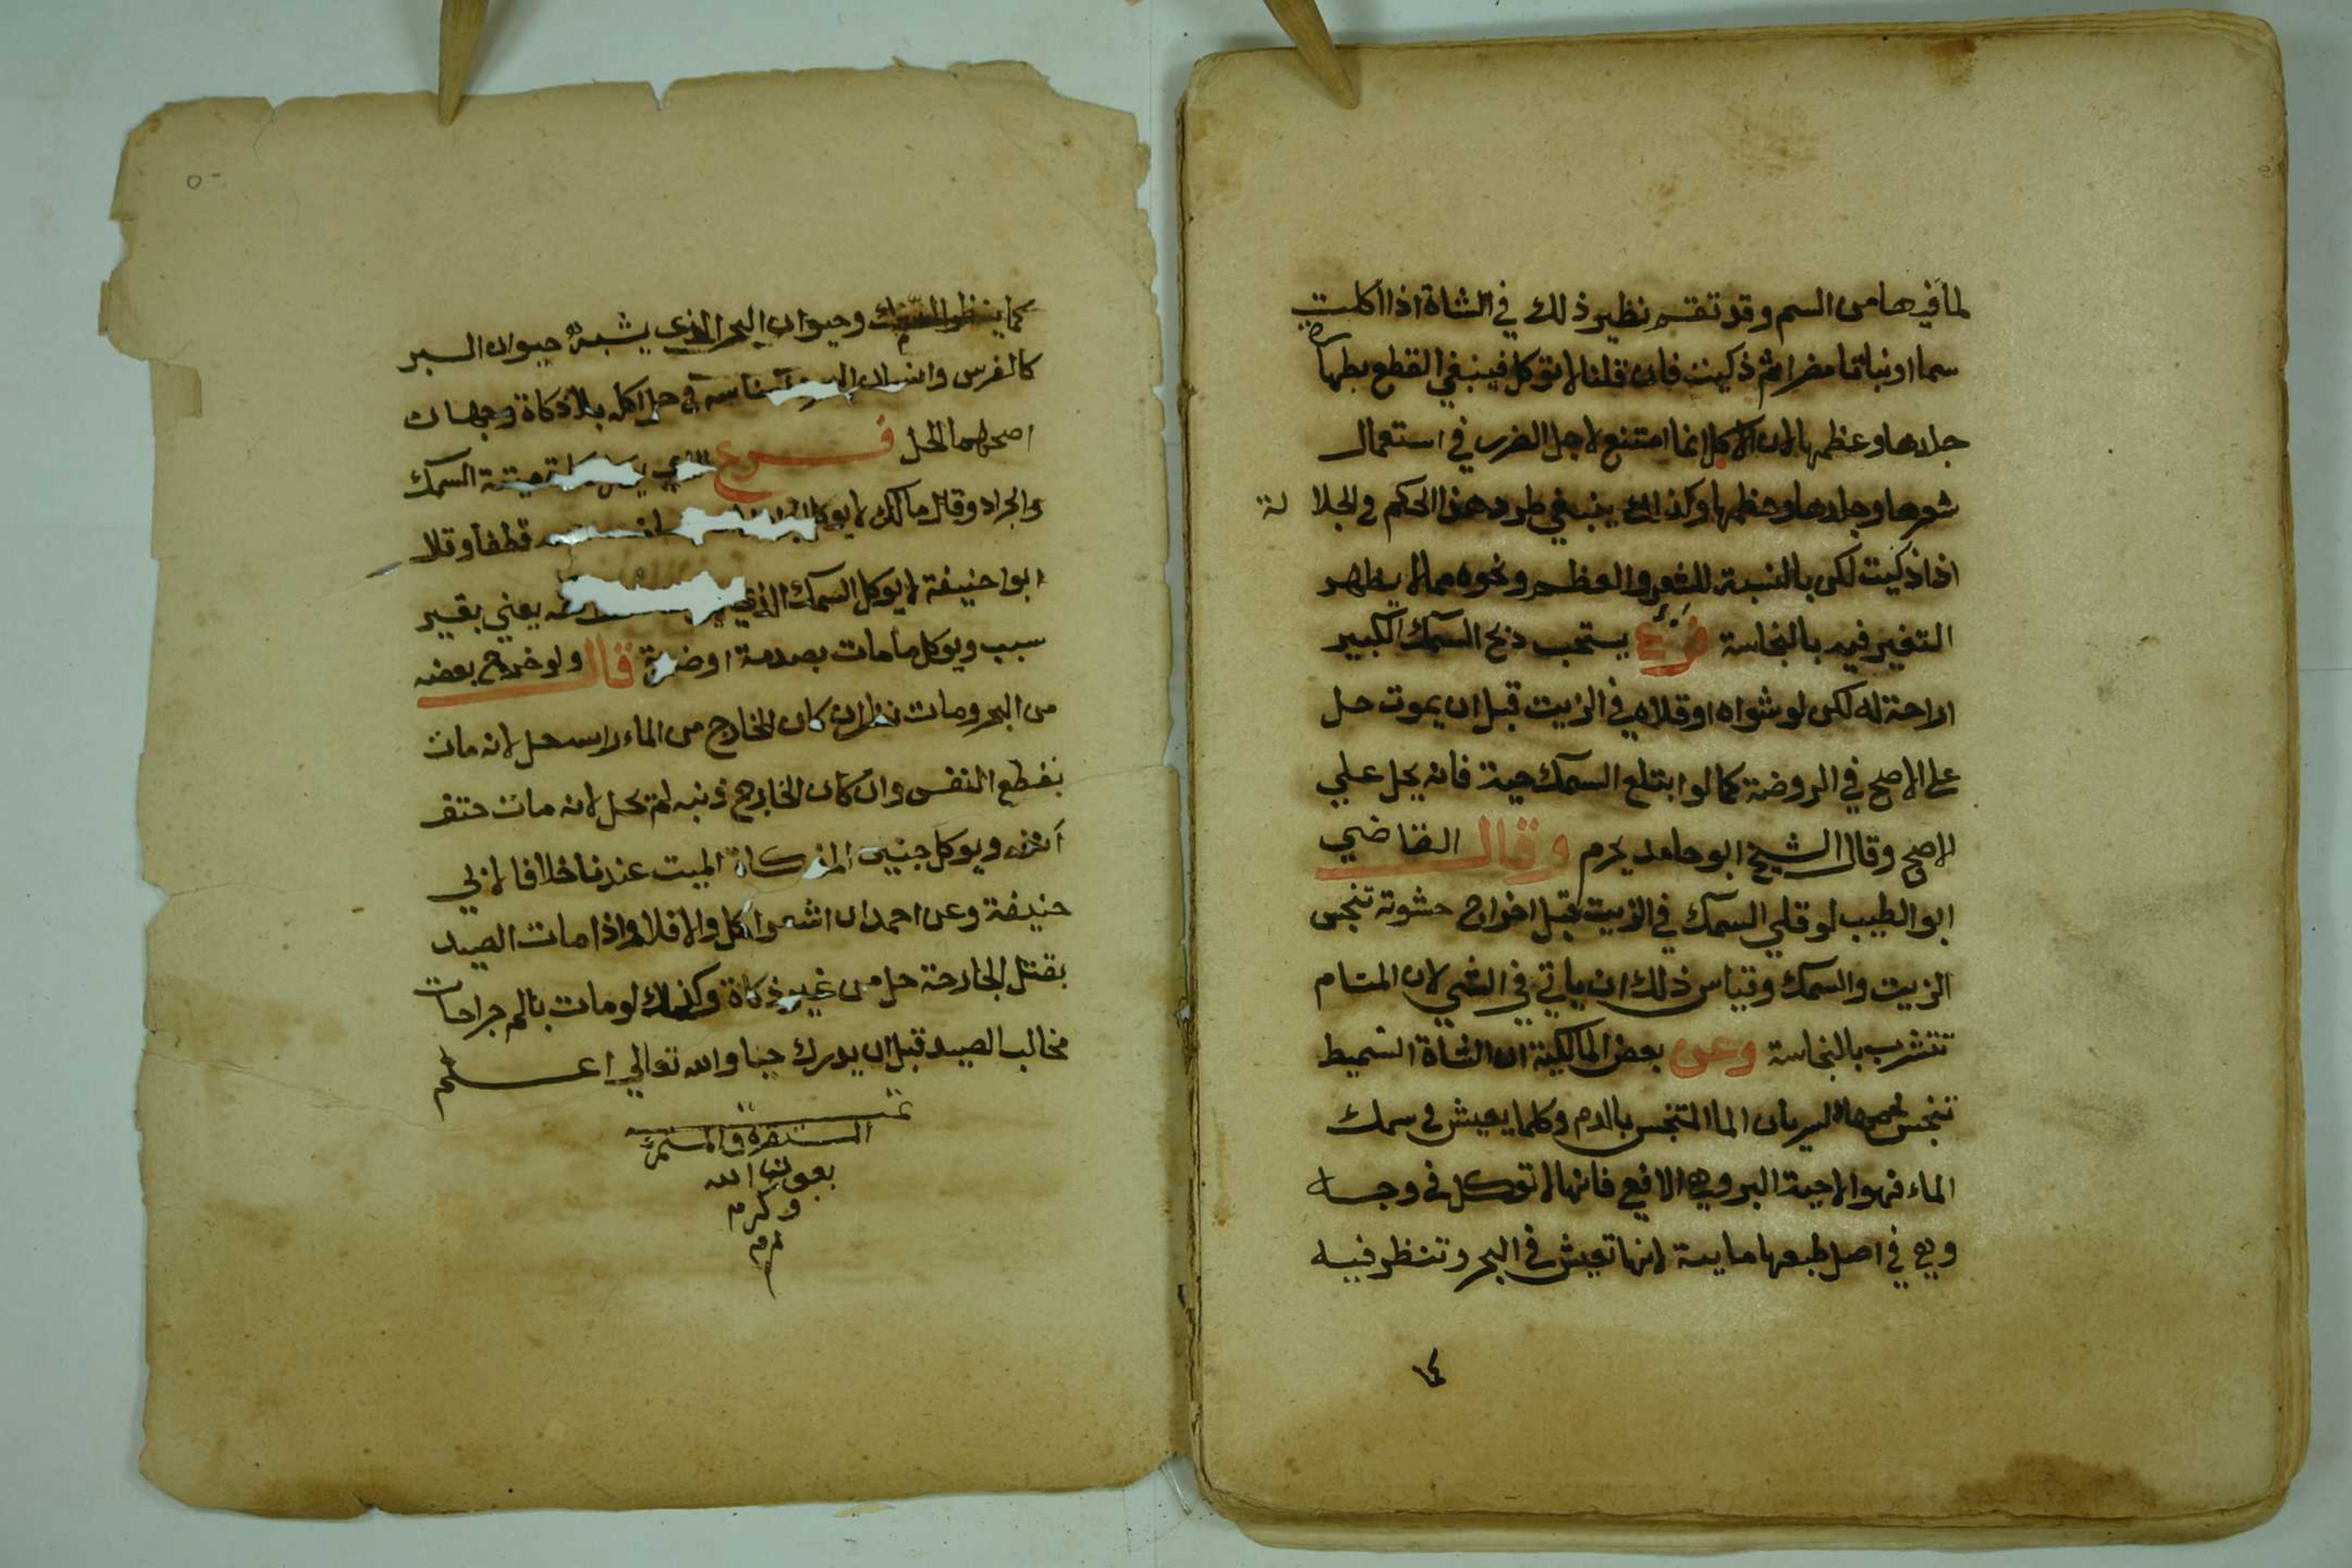 لما فيها من السم وقد تقدم نظير ذلك في الشاة اذا اكلت
سما او نباتا مضرا ثم ذكيت فان قلنا لا توكل فينبغي القطع بطهارة
جلدها وعظمها لان الاكل انما امتنع لاجل الضرر في استعمال
شعرها وجلدها وعظمها وكذلك ينبغي طرد هذا الحكم في الجلا لة
اذا ذكيت لكن بالنسبة للشعر والعظم ونحوه مما لا يظهر
التغير فيه بالنجاسة فرع يستحب ذبح السمك الكبير
اراحة له لكن لو شواه او قلاه في الزيت قبل ان يموت حل
على الاصح في الروضة كما لو ابتلع السمك حية فانه يحل علي
الاصح وقال الشيخ ابو حامد يحرم وقال القاضي
ابو الطيب لو قلي السمك في الزيت قبل اخراج حشوته تنجس
الزيت والسمك وقياس ذلك ان ياتي في الشي لان المسام
تتشرب بالنجاسة وعن بعض المالكية ان الشاة السميط
تنجس لحمها لسريان الما المتنجس بالدم وكلما يعيش في سمك
الماء فهو الاحية البر وهي الافعي فانها لا توكل في وجه
وهي في اصل طبعها مايية لانها تعيش في البحر وتنظر فيه
١٤
كما ينظر السمك وحيوان البحر الذي يشبه حيوان البر
كالفرس وانسان في حل اكله بلا ذكاة وجهان
اصحهما الحل فرع الذي ميتتة السمك
والجراد وقال مالك لا يوكل قطفا وقلا
ابو حنيفة لا يوكل السمك الذي يعني بغير
سبب ويوكل ما مات بصدمة او ضربة قال ولو خرج بعضه
من البحر ومات نظر ان كان الخارج من الماء راسه حل لانه مات
بقطع النفس وان كان الخارج ذنبه لم تحل لانه مات حتف
أنفه ويوكل جنين المذكاة الميت عندنا خلافا لابي
حنيفة وعن احمد ان اشعر اكل والا فلا واذا مات الصيد
بقتل الجارحة حل من غير ذكاة وكذلك لو مات بالم جراحات
مخالب الصيد قبل ان يدرك حيا والله تعالي اعلم
تمت
بعون الله
وكرمه